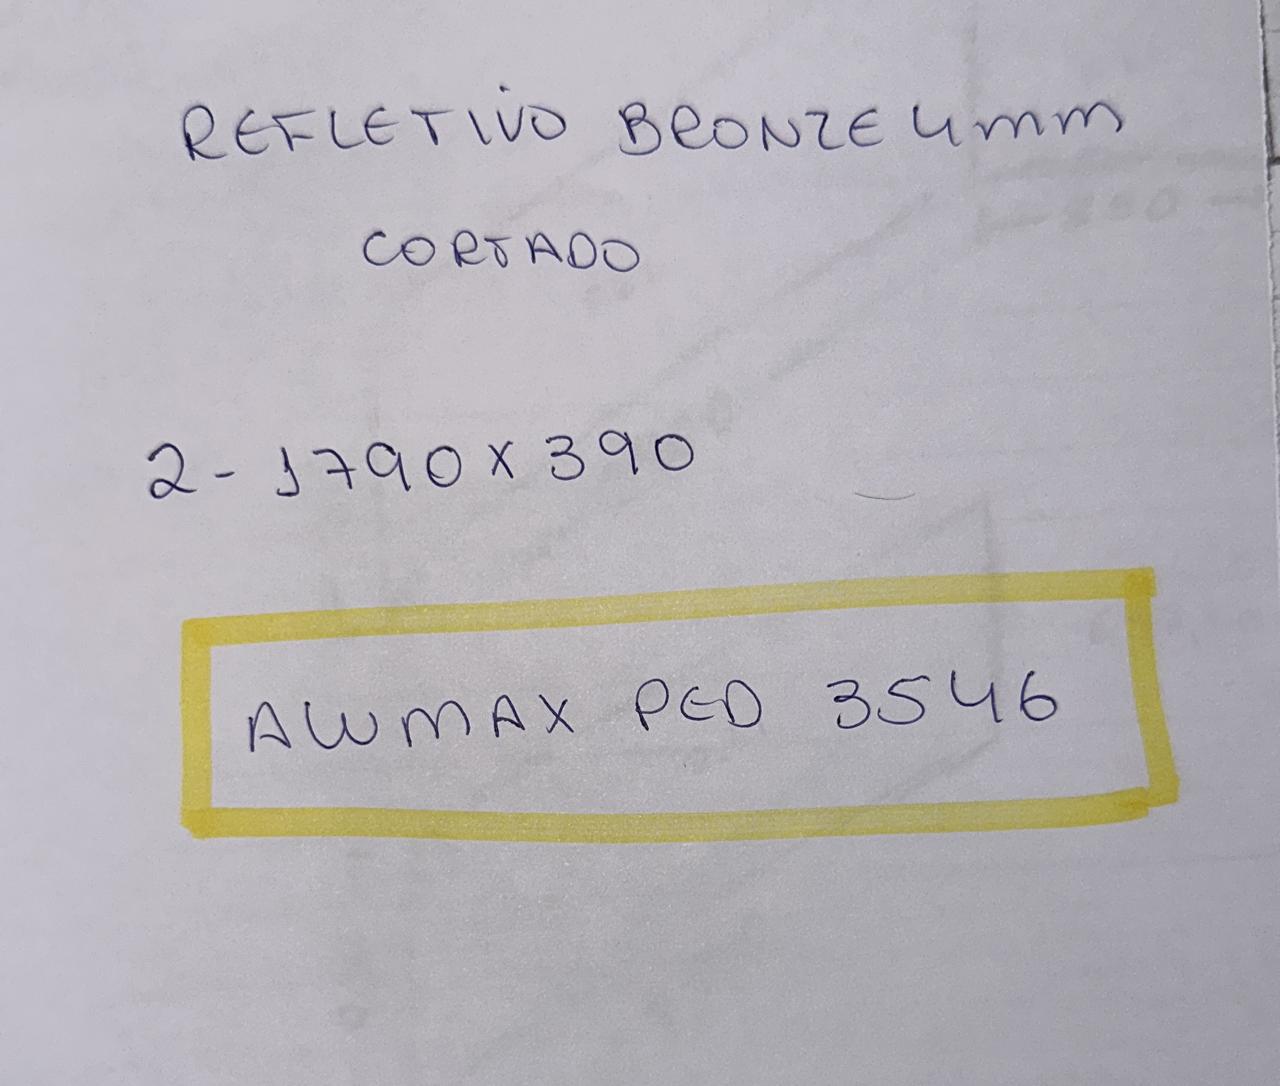 REFLETIVO BRONZE 4mm
CORTADO
2- 1790 x 390
ALUMAX PED 3546